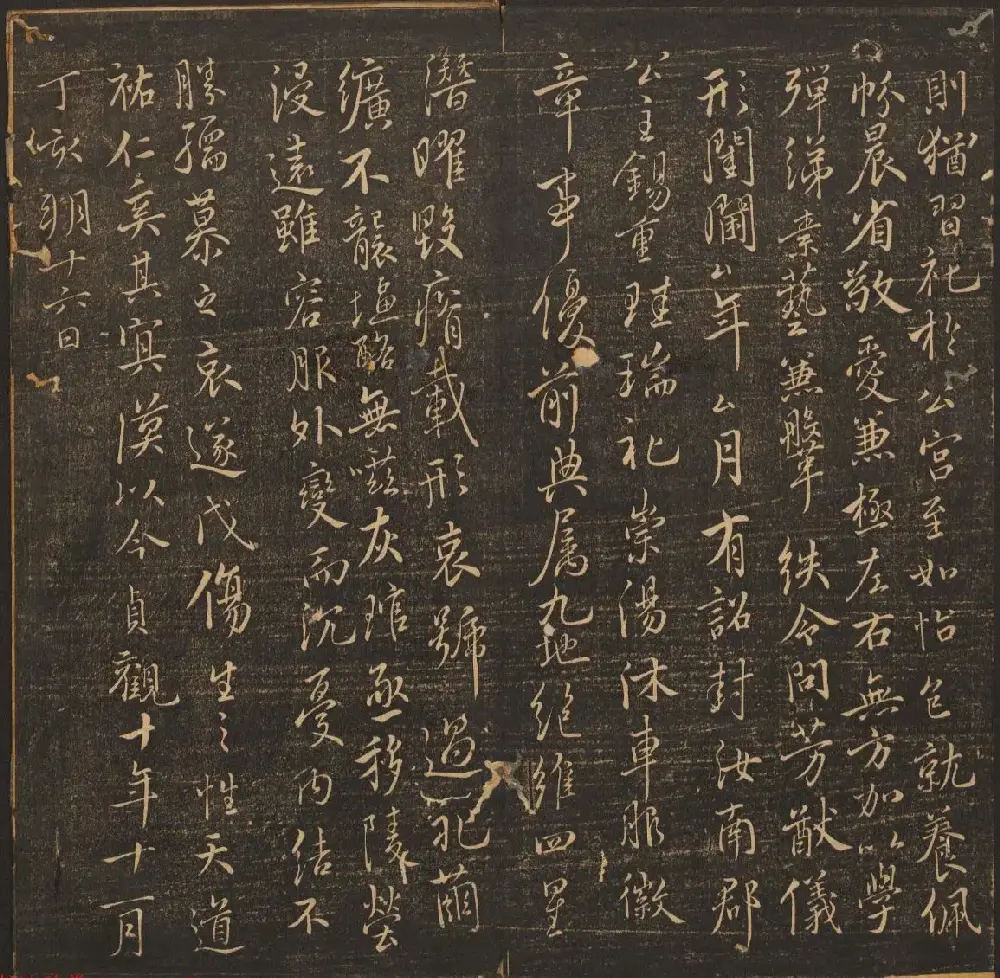 則猶習礼於公宮至如怡色就養佩
帉晨省敬愛兼極左右無方加以學
殫綈素藝兼鞶紩令問芳猷儀
形閨閫厶年厶月有詔封汝南郡
公主錫重珪瑞礼崇湯沐車服徽
章事優前典属九地絕維四星
潛曜毀瘠載形哀號過礼繭
纊不襲塩酪無嚥灰琯亟移陵塋
浸遠雖容服外變而沉憂內結不
勝孺慕之哀遂戊傷生之性天道
祐仁奚其冥漠以今貞觀十年十一月
丁亥朔十六日